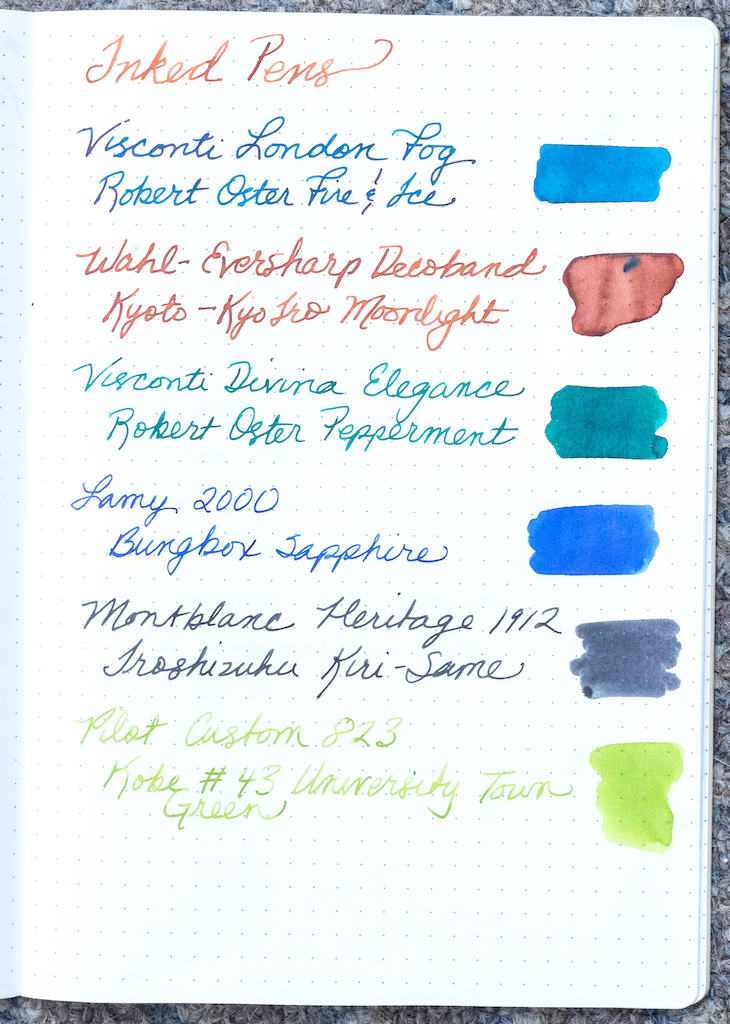 Inked Pens
Visconti London Fog
Robert Oster Fire & Ice
Wahl-Eversharp Decoband
Kyoto-Kyo Iro Moonlight
Visconti Divina Elegance
Robert Oster Pepperment
Lamy 2000
Bungbox Sapphire
Montblanc Heritage 1912
Iroshizuku Kiri-Same
Pilot Custom 823
Kobe # 43 University Town
Green